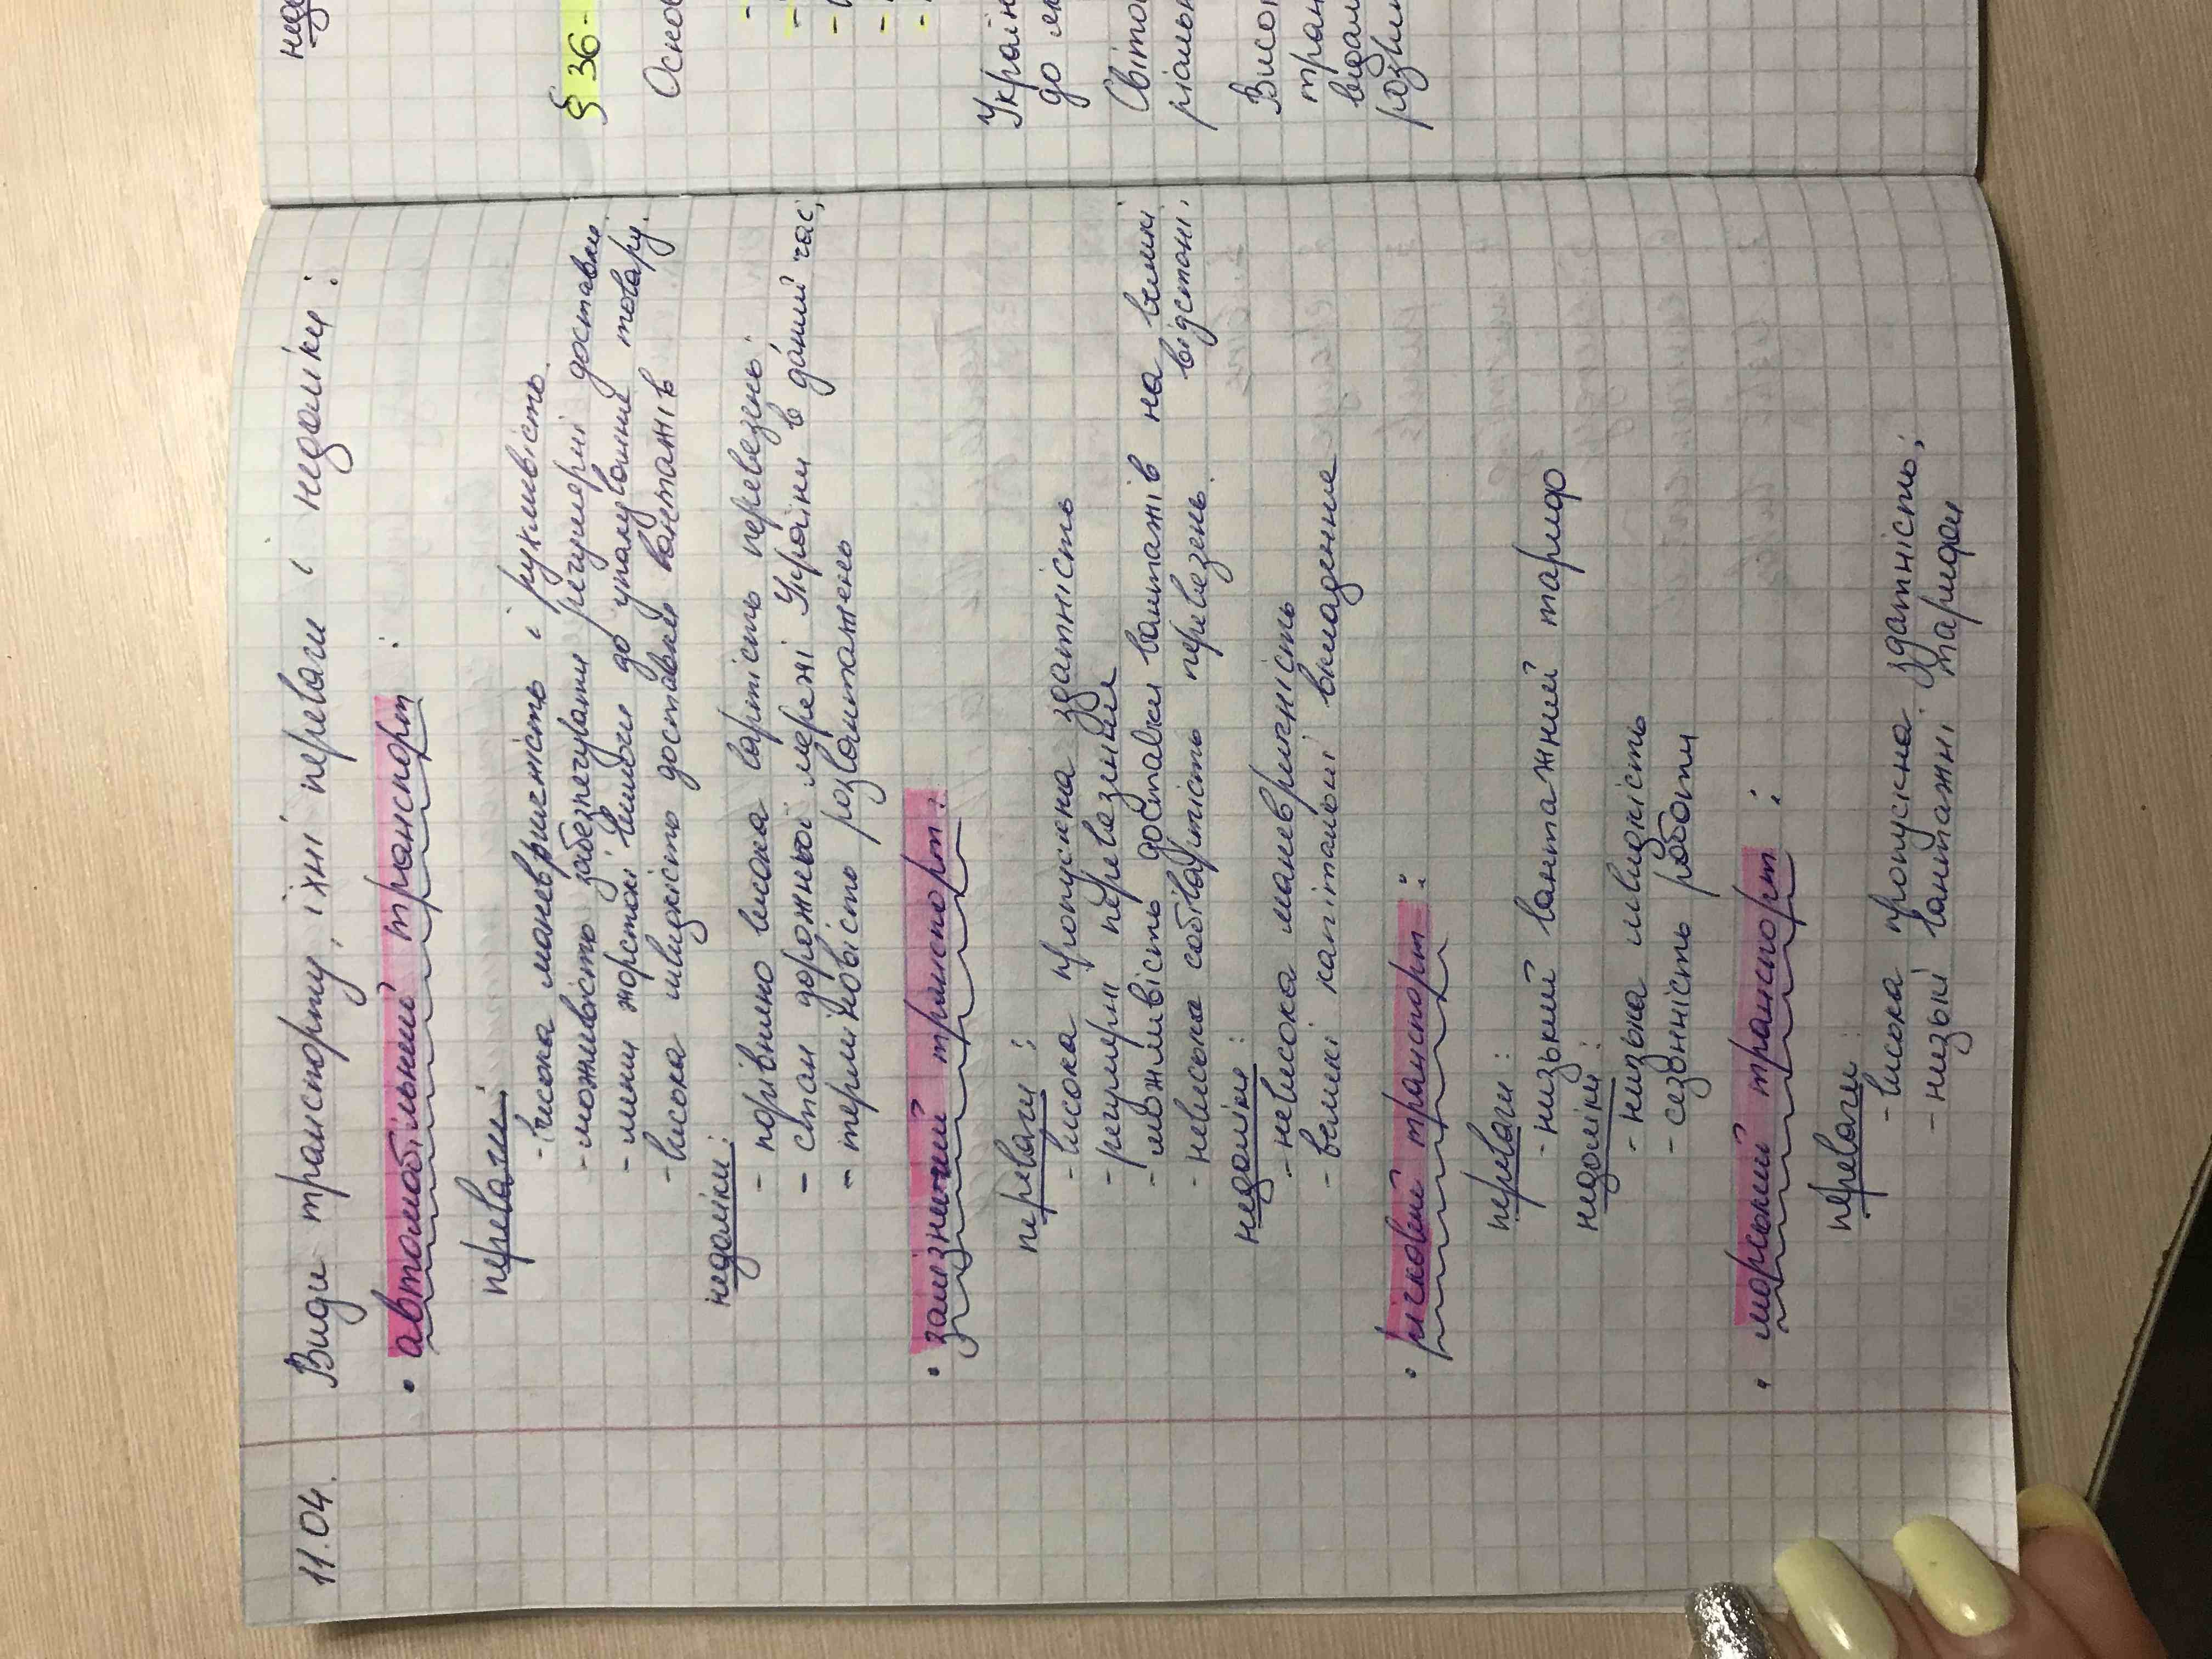 11.04.
Види транспорту, їхні переваги і недоліки:
• автомобільний транспорт:
переваги:
- висока маневричність і рухливість.
- можливість забезпечувати регулярні доставки
- менш жорсткі вимоги до упакування товару.
- висока швидкість доставки вантажів
недоліки:
- порівняно висока вартість перевезень:
- стан дорожньої мережі України в даний час;
- терміновість розвантажень
• залізничний транспорт:
переваги:
- висока пропускна здатність
- регулярні перевезення
- можливість доставки вантажів на великі
відстані.
- невисока собівартість перевезень.
недоліки:
- невисока маневричність
- великі капітальні вкладення
• річковий транспорт:
переваги:
- низький вантажний тариф
недоліки:
- низька швидкість
- сезонність роботи
• морський транспорт:
переваги:
- висока пропускна здатність;
- низькі вантажні тарифи
§ 36-
Україн
до як
Світо
Висо
тран